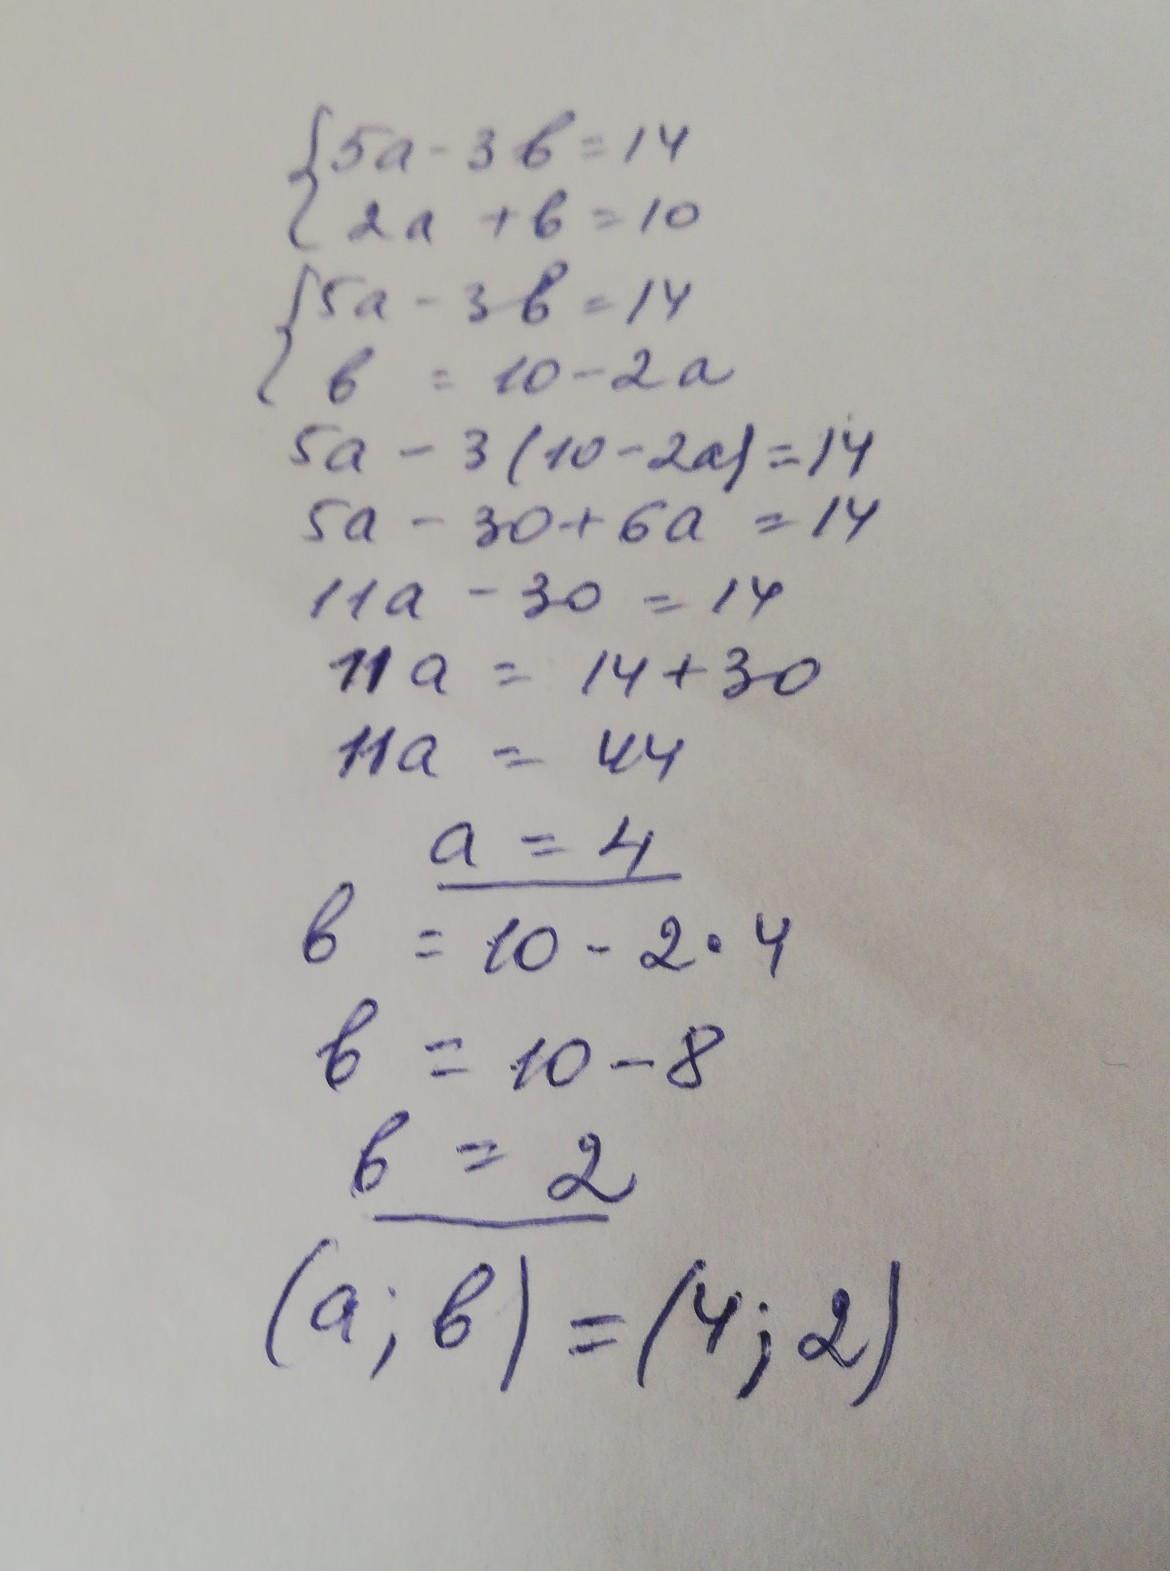 {5a - 3b = 14
{2a + b = 10
{5a - 3b = 14
{b = 10 - 2a
5a - 3(10 - 2a) = 14
5a - 30 + 6a = 14
11a - 30 = 14
11a = 14 + 30
11a = 44
a = 4
b = 10 - 2·4
b = 10 - 8
b = 2
(a; b) = (4; 2)